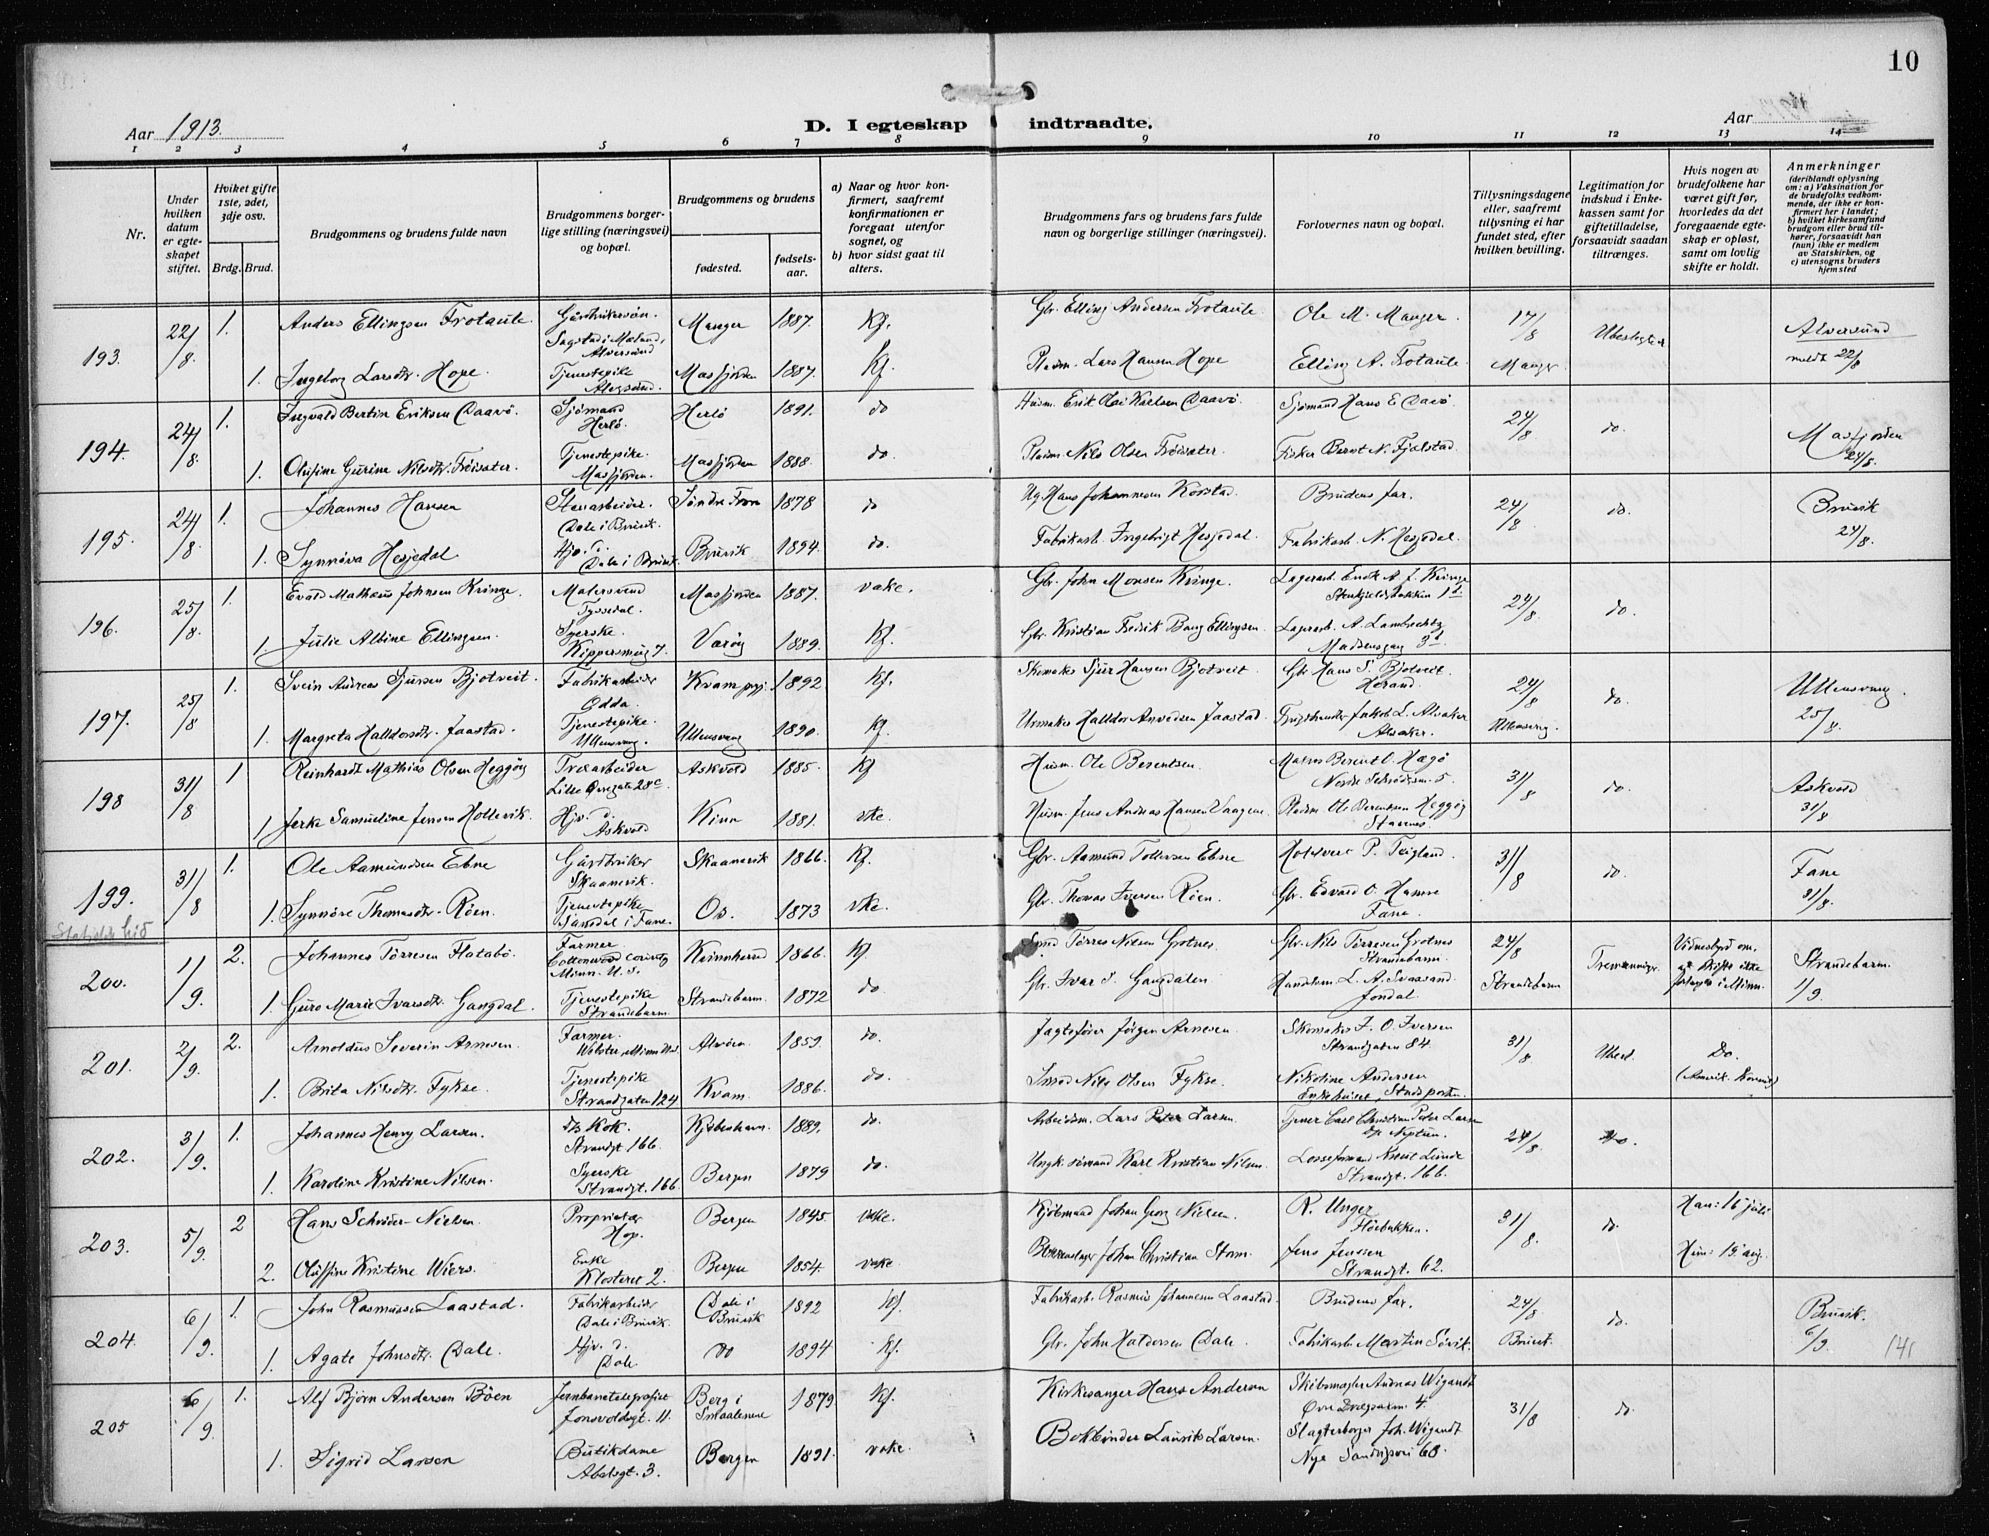 10
Aar 1913.
D. I egteskap indtraadte.
Aar
1 2 3 4 5 6 7 8 9 10 11 12 13 14
Nr.
Under hvilken datum er egteskapet stiftet.
Hviket gifte 1ste, 2det, 3dje osv.
Brdg. Brud.
Brudgommens og brudens fulde navn
Brudgommens borgerlige stilling (næringsvei) og bopæl.
Brudgommens og brudens
fødested.
fødselsaar.
a) Naar og hvor konfirmert, saafremt konfirmationen er foregaat utenfor sognet, og
b) hvor sidst gaat til alters.
Brudgommens fars og brudens fars fulde navn og borgerlige stillinger (næringsvei).
Forlovernes navn og bopæl.
Tillysningsdagene eller, saafremt tillysning ei har fundet sted, efter hvilken bevilling.
Legitimation for indskud i Enkekassen samt for giftetilladelse, forsaavidt saadan tiltrænges.
Hvis nogen av brudefolkene har været gift før, hvorledes da det foregaaende egteskap er opløst, samt om lovlig skifte er holdt.
Anmerkninger
(deriblandt oplysning om: a) Vaksination for de brudefolks vedkommende, der ikke er konfirmert her i landet; b) hvilket kirkesamfund brudgom eller brud tilhører, forsaavidt han (hun) ikke er medlem av Statskirken, og c) utensogns bruders hjemsted
193. 22/8 1. Anders Ellingsen Frotaule. Manger 1887. Kf. Gbr. Elling Andersen Frotaule Ole M. Manger. 17/8 Ubeslegtet Alversund
meldt 22/8
1. Ingeborg Larsdtr. Hope. Tjenestepike Masfjorden 1887. Kf. Lars Hansen Hope Elling A. Frotaule Manger
194. 24/8. 1. Ingvald Bertin Eriksen Daavø. Sjømand Herlø. Herlø 1891. do Sjømand Hans E Davø 24/8 do. Masfjorden 24/8
1. Olufine Gurine Nilsdtr. Frøisæter. Tjenestepike. Masfjorden. Masfjorden 1888. do. Nils Olsen Frøisæter Fisker Bernt N. Fjelstad
195. 24/8. 1. Johannes Hansen Dale i Bruvik. Søndre Fron 1878 do Hans Johannesen Korstad. Brudens far. 24/8. do. Bruvik 24/8.
1. Synnøva Hesjedal Hjv. d. Dale i Bruvik Bruvik 1894. do. Fabrikarb. Ingebrigt Hesjedal. Fabrikarb. N. Hesjedal.
196. 25/8. 1. Malersvend Tyssedal. Masfjorden 1887. vake. Gbr. John Monsen Kringe. 24/8 do.
1. Julie Albine Ellingsen. Syerske. Værøy 1889. Kf. Gbr. Kristian Fredrik Bang Ellingsen Lagerarb. A. Lambrechts Madsensgang 3d
197. 25/8 1. Svein Andreas Sjursen Bjotveit. Fabrikarbeider Odda. 1892 Kf. Skomaker Sjur Hansen Bjotveit Gbr Hans S. Bjotveit 24/8 do. Ullensvang 25/8.
1. Margreta Halldorsdtr. Jaastad. Tjenestepike. Ullensvang. Ullensvang 1890. Kf. Urmaker Halldor Jaastad. Ullensvang.
198 31/8 1 Reinhardt Mathias Olsen Heggøy Træarbeider Askvold 1885. Kf Husm. Ole Berentsen. 31/8 do. Askvold 31/8
1 Jerke Samueline Jensen Hollevik. Hjv. d. Askvold Kinn 1881. vke. Husm. Jens Andreas Hansen Vaagene Ole Berentsen Heggøy
199. 31/8 1. Ole Aamundsen Ebne Gårdbruker Skaanevik. Skaanevik 1866. Kf. Gbr. Aamund Tollefsen Ebne P. Teigland. 31/8 do. Fane 31/8.
1. Synnøve Thomasdtr. Røen. Tjenestepike Os. 1873 vke. Gbr. Thomas Iversen Røen. Gbr. Edvard O. Hamre Fane.
200. 1/9. 2. Johannes Tørresen Flatabø. Farmer Cottonwood County Minn. U.S. Kvinnherad 1866. Kf Tørres Nilsen Grotnes. Gbr. Nils Tørresen Grotnes Strandebarm. 24/8 Strandebarm Tremenninger. Vidnesbyrd om, at skifte ikke forlanges i Minn. Strandebarm. 1/9.
1. Guro Marie Ivarsdtr. Gangdal. Tjenestepike Strandebarm. Strandebarm. 1872 do Gbr. Ivar S. Gangdalen Handelsm. L. A. Svaasand Jondal.
201. 2/9. 2. Arnoldus Severin Arnesen. Farmer. Alvøen 1859. do. Jagtefører Jørgen Arnesen. Skomaker J. O. Iversen Strandgaten 84. 31/8 Ubesl. Do.
1. Brita Nilsdtr. Fykse. Tjenestepike Strandgaten 124 Kvam. 1886. do. Smed Nils Olsen Fykse. Nikoline Andersen Enkehuset, Stadsporten.
202. 3/9. 1. Johannes Henry Larsen. Kok. Strandgt. 166. Kjøbenhavn. 1889. do. Arbeidsm. Lars Peter Larsen. Tjener Carl Christian Peter Larsen D/S Neptun. 24/8. do.
1. Karoline Kristine Nilsen. Syerske Strandgt. 166 Bergen 1879 do. Ungk. sømand Karl Kristian Nilsen. Lossesormand Knut Lunde Strandgt. 166.
203. 5/9. 2 Hans Schrøder Nielsen. Proprietær Hop. Bergen 1845. vake. Kjøbmand Johan Georg Nielsen. R. Unger Fløebakken. 31/8. do. Han: 16 juli
2. Olufine Kristine Wiers. Enke Klosteret 2. Bergen 1854. vake. Johan Christian Storm. Jens Jenssen Strandgt. 62. Hun: 19 aug.
204. 6/9. 1. John Rasmussen Laastad. Fabrikarbeider Dale i Bruvik. Dale i Bruvik 1892 Kf. Fabrikarb. Rasmus Johannesen Laastad. Brudens far. 24/8. do. Bruvik. 6/9.
1. Agate Johnsdtr. Dale. Hjv. d. Dale. do 1894 Kf. Gbr. John Haldorsen Dale. Fabrikarb. Martin Sørvik. 141
205 6/9. 1. Alf Bjørn Andersen Bøen Jernbanetelegrafist Jonsvoldsgt. 11. Berg i Smaalenene 1879 Kf. Kirkesanger Hans Andersen Skibsmægler Andreas Wigandt 31/8 do.
1. Sigrid Larsen Butikdame Bergen 1891. vake. Bokbinder Laurits Larsen. Slagterborger Joh. Wigandt Nye Sandviksvei 68